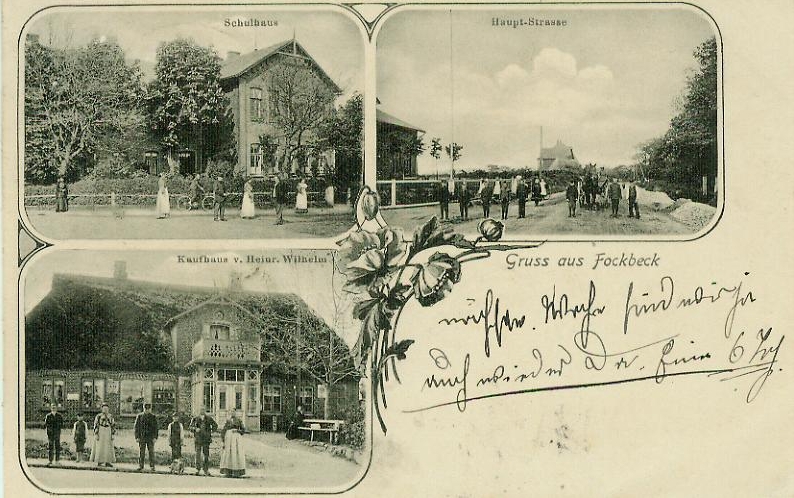 Schulhaus
Haupt-Strasse
Kaufhaus v. Heinr. Wilhelm
Gruss aus Fockbeck
nächste. Woche sind wir ja
auch wieder Da. 6 Tg